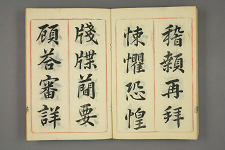 稽顙再拜
悚懼恐惶
牋牒簡要
顧荅審詳